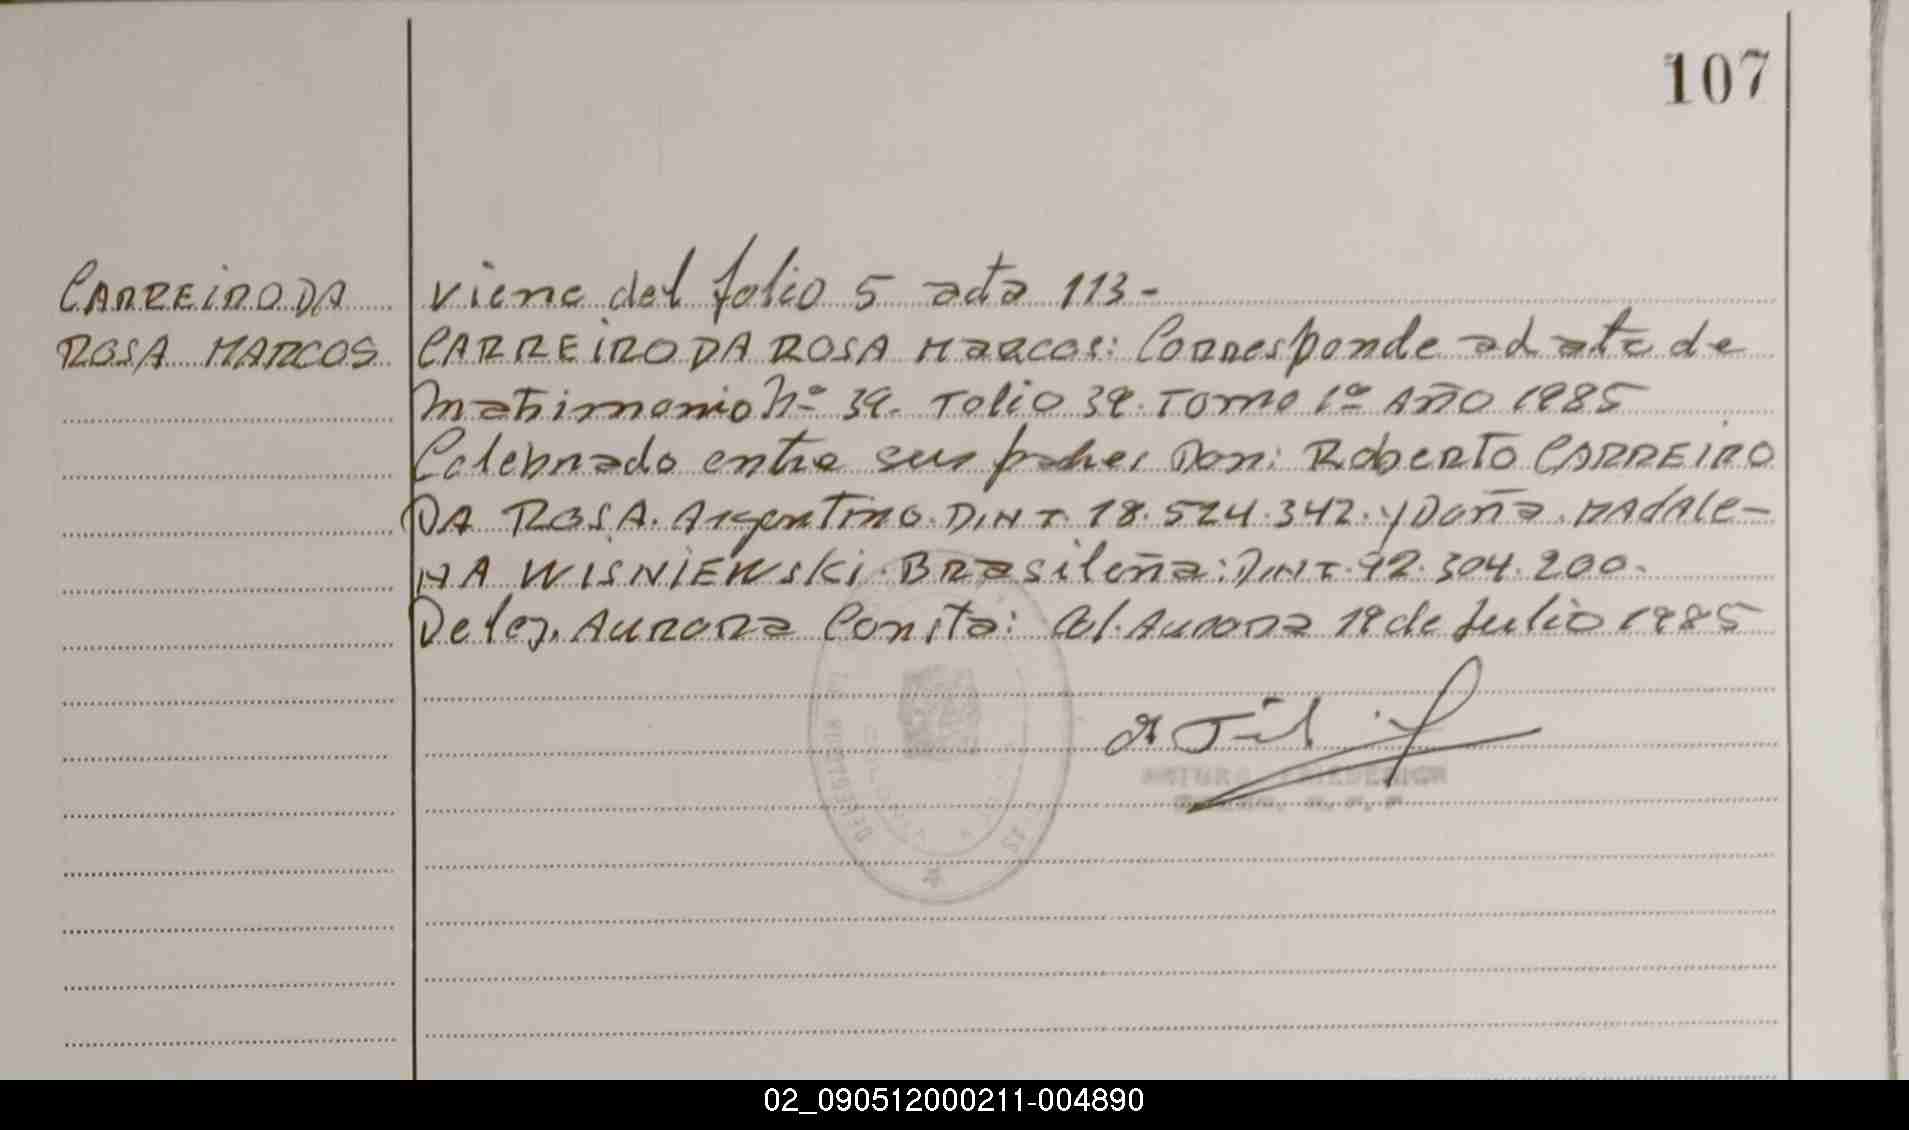 107
CARREIRO DA
ROSA MARCOS
viene del folio 5 acta 113-
CARREIRO DA ROSA Marcos: Corresponde ad acta de
Matrimonio Nº 39. Folio 39. Tomo 1º Año 1985
Celebrado entre sus padres Don: Roberto CARREIRO
DA ROSA. Argentino. D.N.I. 18.524.342. y Doña. MADALE-
NA WISNIEWSKi. Brasileña: D.N.I. 92.304.200.
Deleg. Aurora Consta: Col. Aurora 19 de Julio 1985
ARTURO FRIEDERICH
02_090512000211-004890